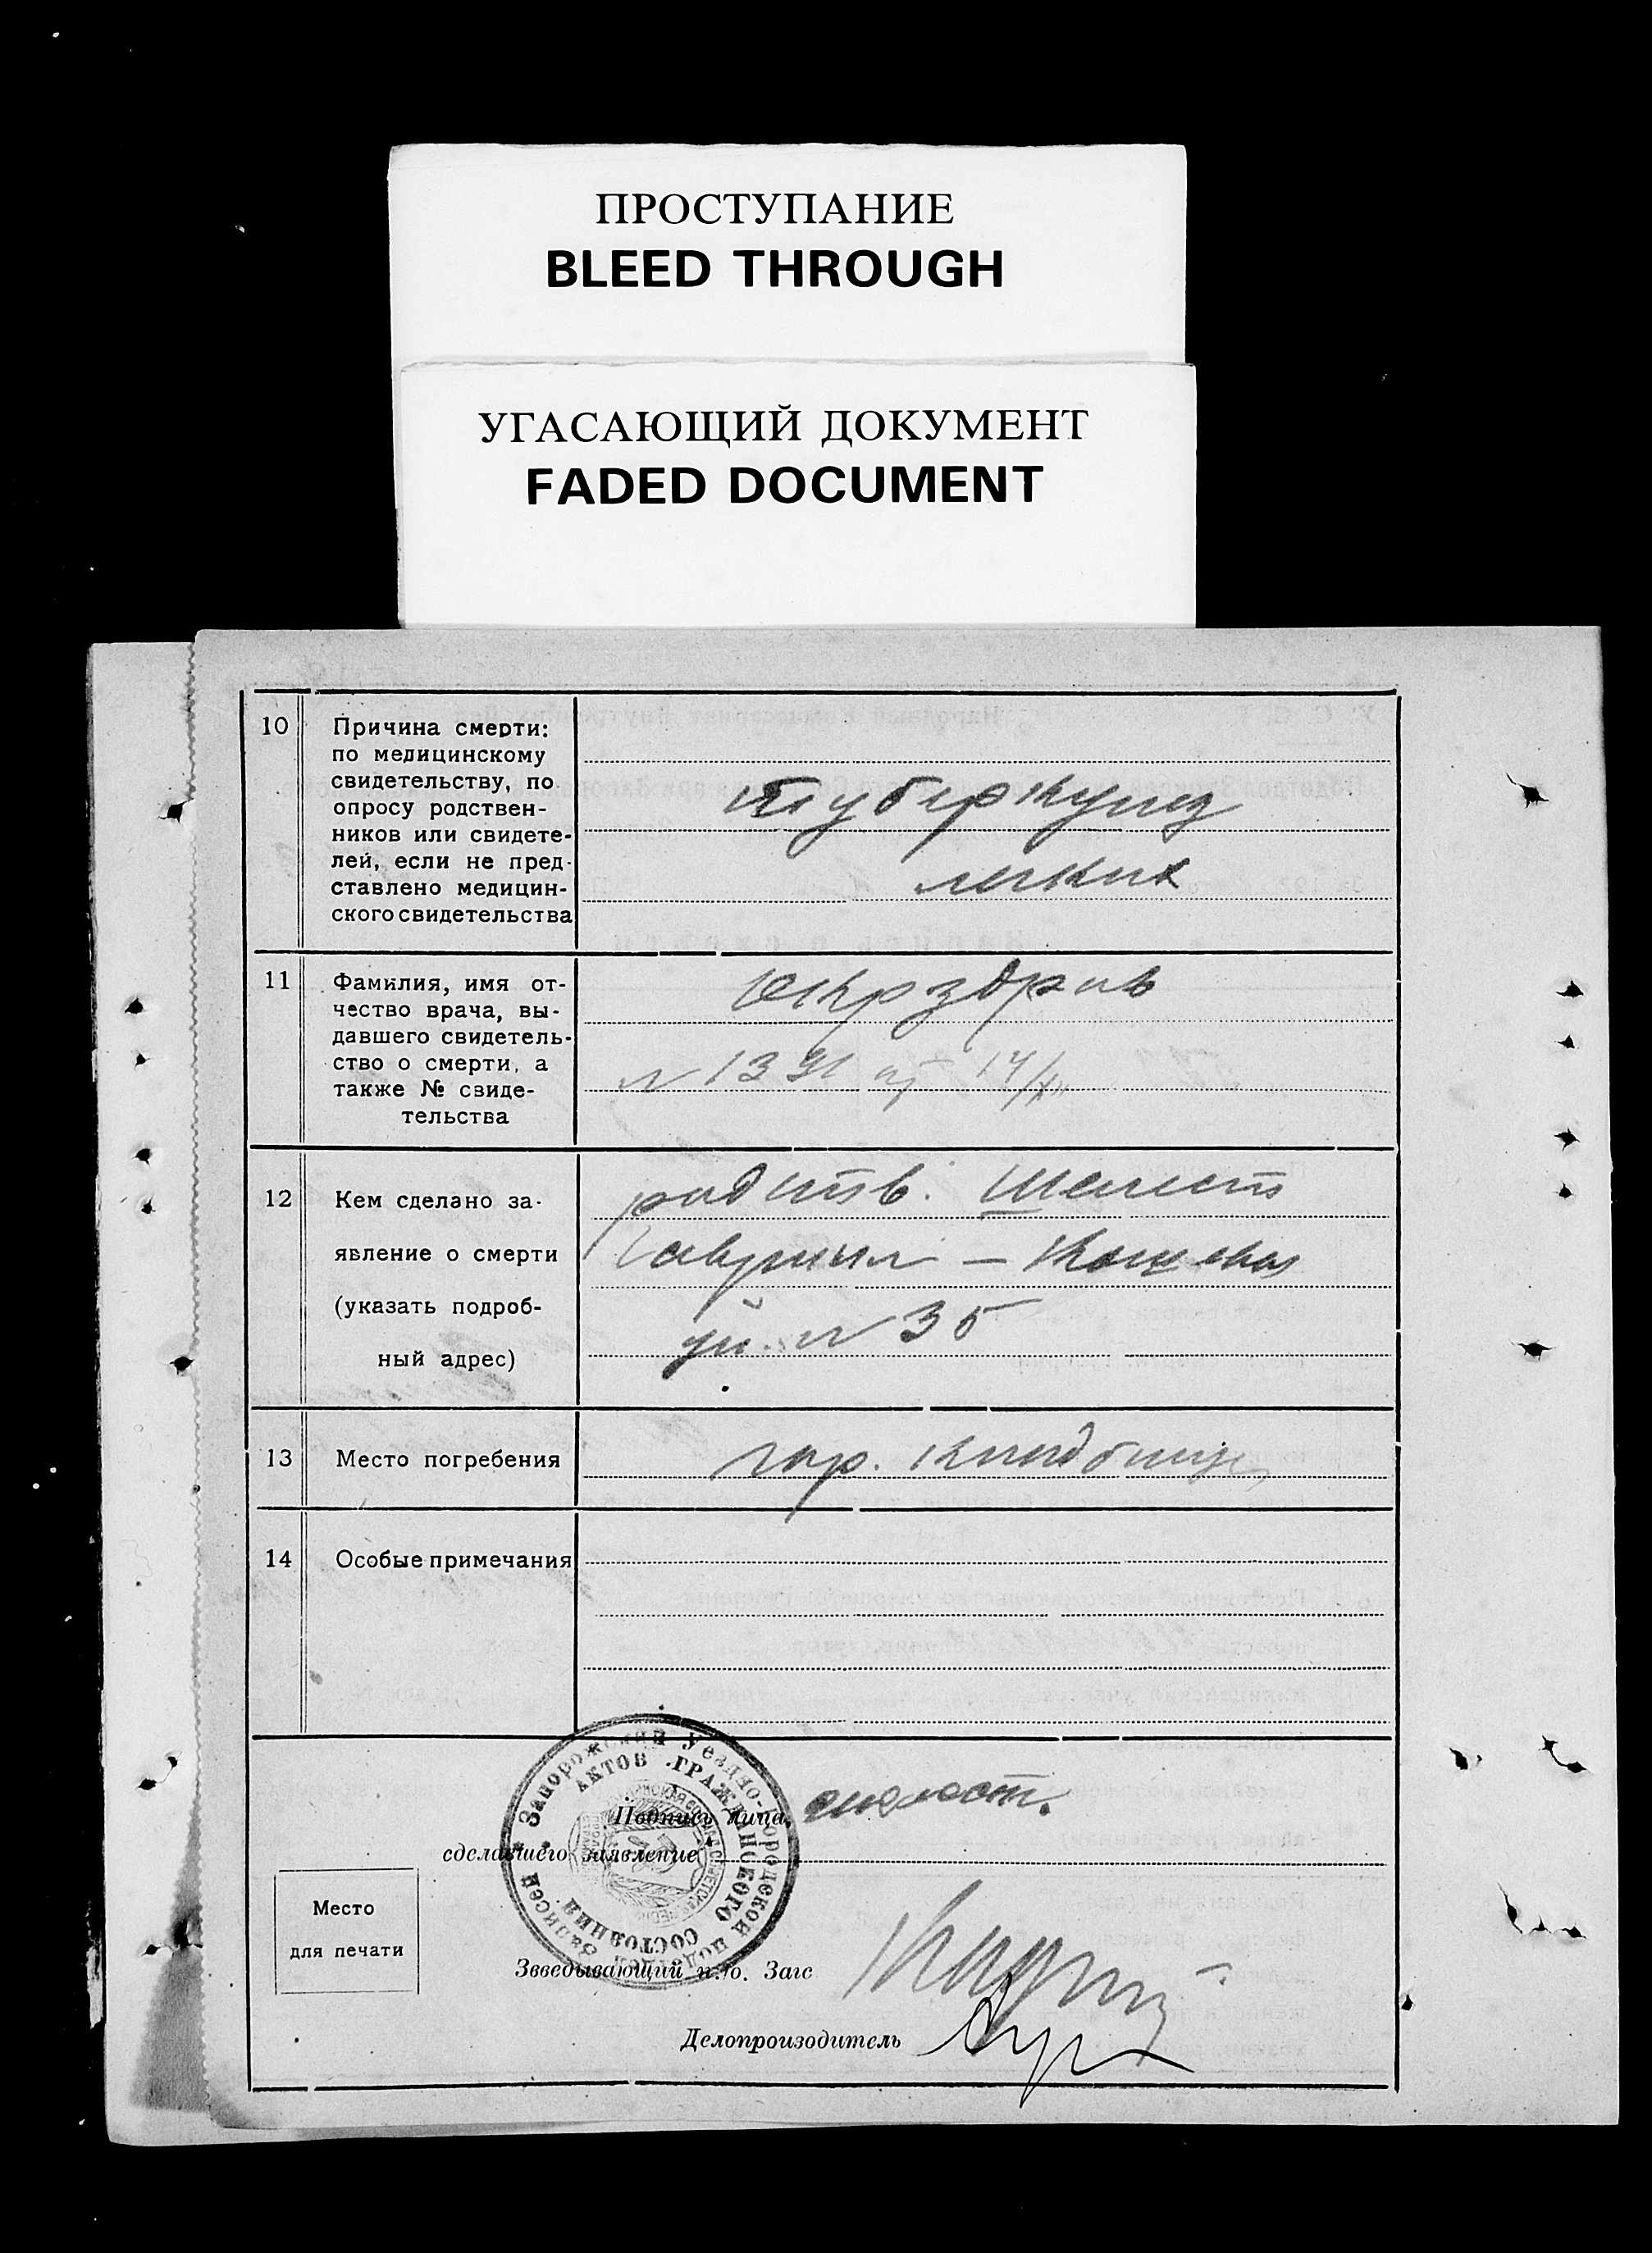 ПРОСТУПАНИЕ
BLEED THROUGH
УГАСАЮЩИЙ ДОКУМЕНТ
FADED DOCUMENT
10
Причина смерти:
по медицинскому
свидетельству, по
опросу родствен-
ников или свидете-
лей, если не пред-
ставлено медицин-
ского свидетельства
туберкулез
легких
11
Фамилия, имя от-
чество врача, вы-
давшего свидетель-
ство о смерти, а
также № свиде-
тельства
Окрздрав
12
Кем сделано за-
явление о смерти
(указать подроб-
ный адрес)
родств. Шелест
Гавриил —
ул. N 35
13
Место погребения
гор. кладбище
14
Особые примечания
Запорожский Уездно-Городской подотдел Записей
АКТОВ ГРАЖДАНСКОГО СОСТОЯНИЯ
Подпись лица
сделавшего заявление
Место
для печати
Зведывающий п.-о. Загс
Делопроизводитель